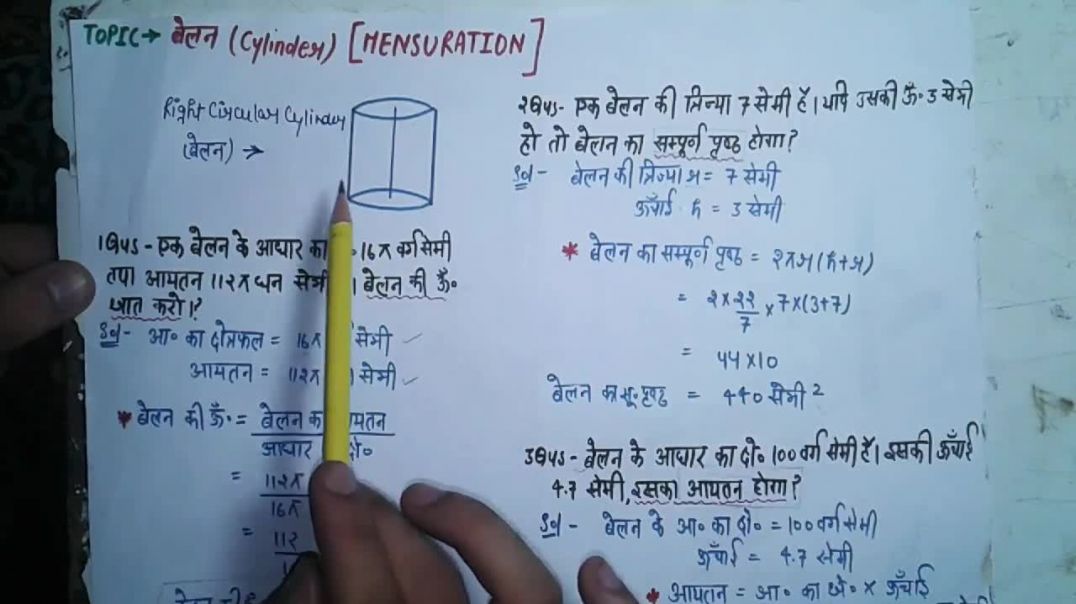 TOPIC→ बेलन (Cylinder) [MENSURATION]
Right Circular Cylinder
(बेलन) →
1Qus - एक बेलन के आधार का 16π वर्ग सेमी
तथा आयतन 112π घन सेमी। बेलन की ऊँ॰
ज्ञात करो।?
Sol - आ॰ का क्षेत्रफल = 16π सेमी
आयतन = 112π सेमी
* बेलन की ऊँ॰ = बेलन का
आधार क्षे॰
= 112π
16π
= 112
2Qus- एक बेलन की त्रिज्या 7 सेमी है। यदि उसकी ऊँ॰ 3 सेमी
हो तो बेलन का सम्पूर्ण पृष्ठ होगा?
Sol - बेलन की त्रिज्या r = 7 सेमी
ऊँचाई h = 3 सेमी
* बेलन का सम्पूर्ण पृष्ठ = 2πr(h+r)
= 2×22/7×7×(3+7)
= 44×10
बेलन का सू॰ पृष्ठ = 440 सेमी²
3Qus - बेलन के आधार का क्षे॰ 100 वर्ग सेमी है। इसकी ऊँचाई
4.7 सेमी, इसका आयतन होगा?
Sol - बेलन के आ॰ का क्षे॰ = 100 वर्ग सेमी
ऊँचाई = 4.7 सेमी
* आयतन = आ॰ का क्षे॰ × ऊँचाई